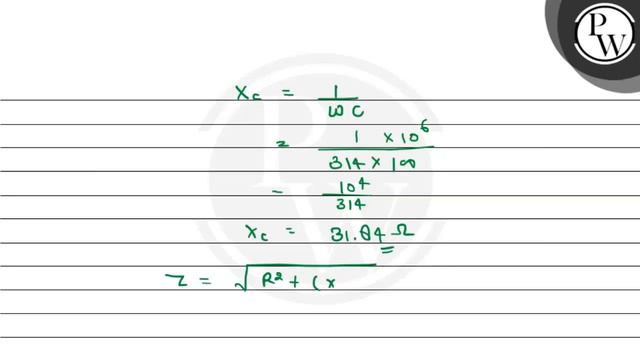 PW
X_c = 1/ωC
= 1 × 10^6 / 314 × 100
= 10^4 / 314
X_c = 31.84 Ω
Z = √R² + (x